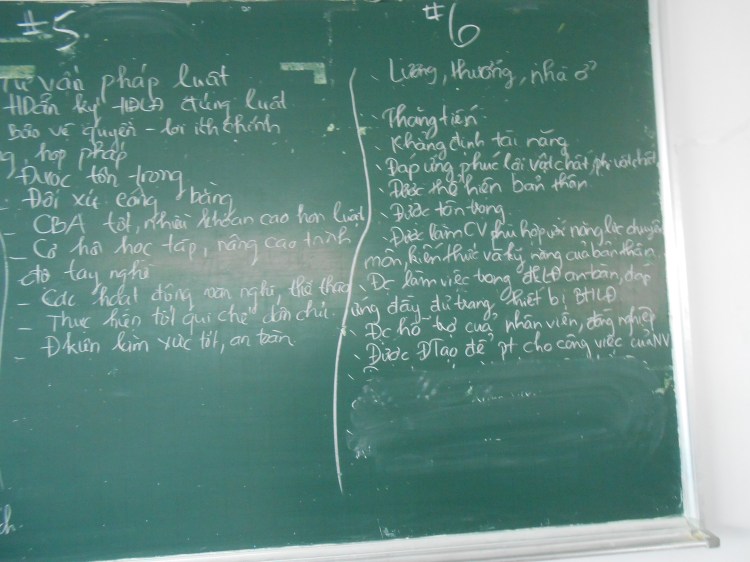 #5
Tư vấn pháp luật
HDẫn ký HĐLĐ đúng luật
Bảo vệ quyền - lợi ích chính
g, hợp pháp
Được tôn trọng
- Đối xử công bằng
- CBA tốt, nhiều khoản cao hơn luật
- Cơ hội học tập, nâng cao trình
độ tay nghề
- Các hoạt động văn nghệ, thể thao
- Thực hiện tốt qui chế dân chủ.
- Đkiện làm việc tốt, an toàn.
ch.
#6
Lương, thưởng, nhà ở
Thăng tiến
Khẳng định tài năng
Đáp ứng phúc lợi vật chất/phi vật chất
Được thể hiện bản thân
Được tôn trọng
Được làm CV phù hợp với năng lực chuyên
môn, kiến thức và kỹ năng của bản thân
Đc làm việc trong ĐKLĐ an toàn, đáp
ứng đầy đủ trang thiết bị BHLĐ
Đc hỗ trợ của nhân viên, đồng nghiệp
Được ĐTạo để pt cho công việc của NV